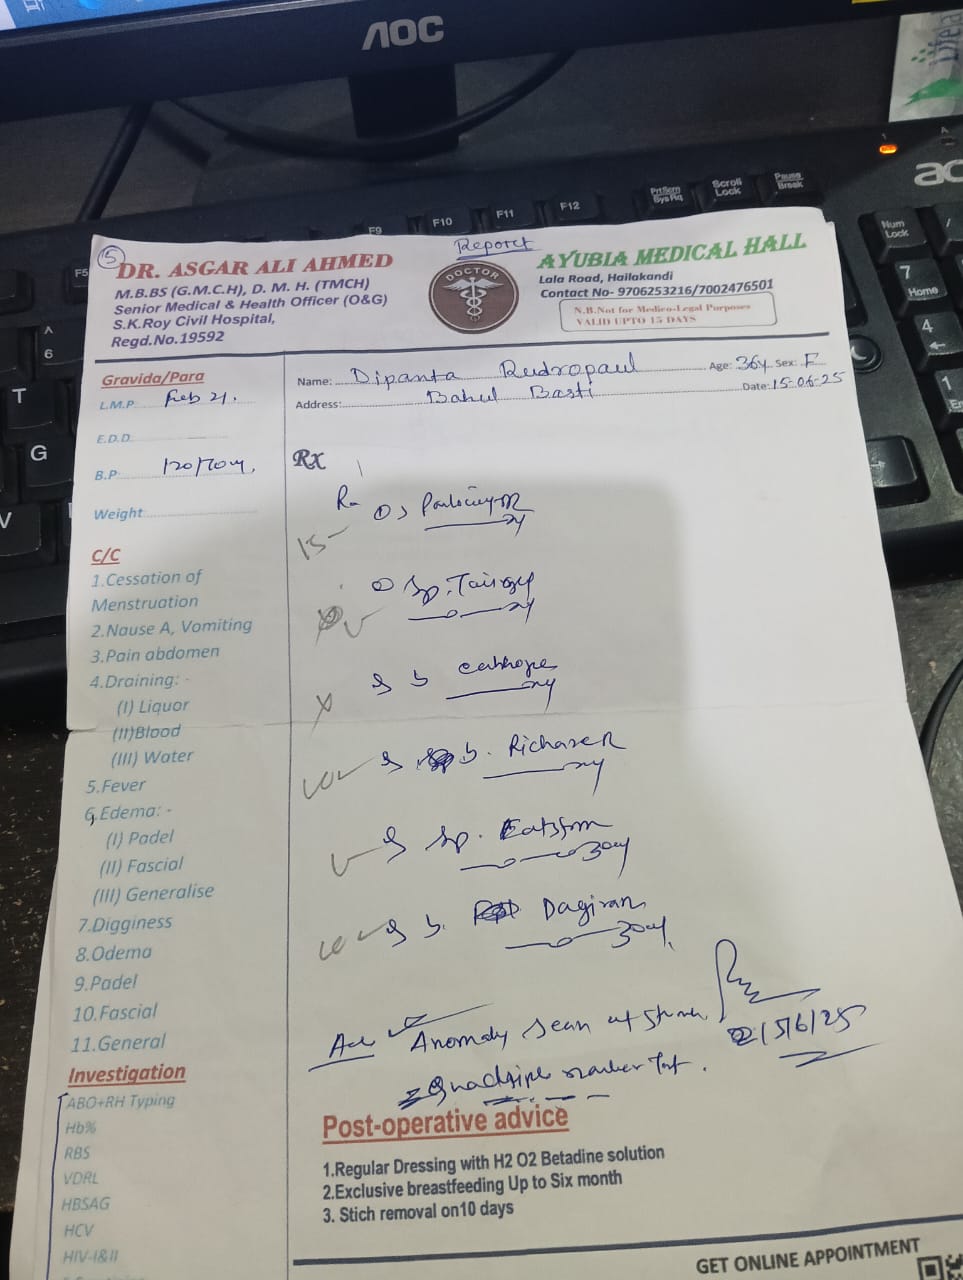 AOC
F5
F9
F10
F11
F12
PrtScrn
SysRq
Scroll
Lock
Pause
Break
Num
Lock
7
Home
4
1
6
T
G
V
15
Report
DR. ASGAR ALI AHMED
M.B.BS (G.M.C.H), D. M. H. (TMCH)
Senior Medical & Health Officer (O&G)
S.K.Roy Civil Hospital,
Regd.No.19592
DOCTOR
AYUBIA MEDICAL HALL
Lala Road, Hailakandi
Contact No- 9706253216/7002476501
N.B.Not for Medico-Legal Purposes
VALID UPTO 15 DAYS
Name: Dipanta Rudropaul Age: 36y Sex: F
Address: Bahul Basti Date: 15-06-25
Gravida/Para
L.M.P. Feb 21.
E.D.D.
B.P. 120/70
Weight
C/C
1.Cessation of
Menstruation
2.Nause A, Vomiting
3.Pain abdomen
4.Draining: -
(I) Liquor
(II)Blood
(III) Water
5.Fever
6.Edema: -
(I) Padel
(II) Fascial
(III) Generalise
7.Digginess
8.Odema
9.Padel
10.Fascial
11.General
Investigation
ABO+RH Typing
Hb%
RBS
VDRL
HBSAG
HCV
HIV-I&II
Rx
15-
Sp.
Richase-R
Sp.
30
Dagiran
30
Adv Anomaly Scan
marker Test.
15/6/25
Post-operative advice
1.Regular Dressing with H2 O2 Betadine solution
2.Exclusive breastfeeding Up to Six month
3. Stich removal on10 days
GET ONLINE APPOINTMENT